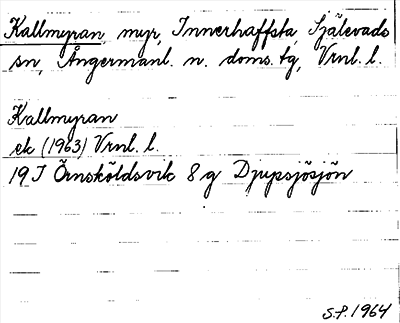 Kallmyran, myr, Innerhaffsta, Själevads
sn, Ångermanl. n. doms. tg, Vrnl. l.
Kallmyran
ek (1963) Vrnl. l.
19 I Örnsköldsvik 8 g Djupsjösjön
S.P. 1964